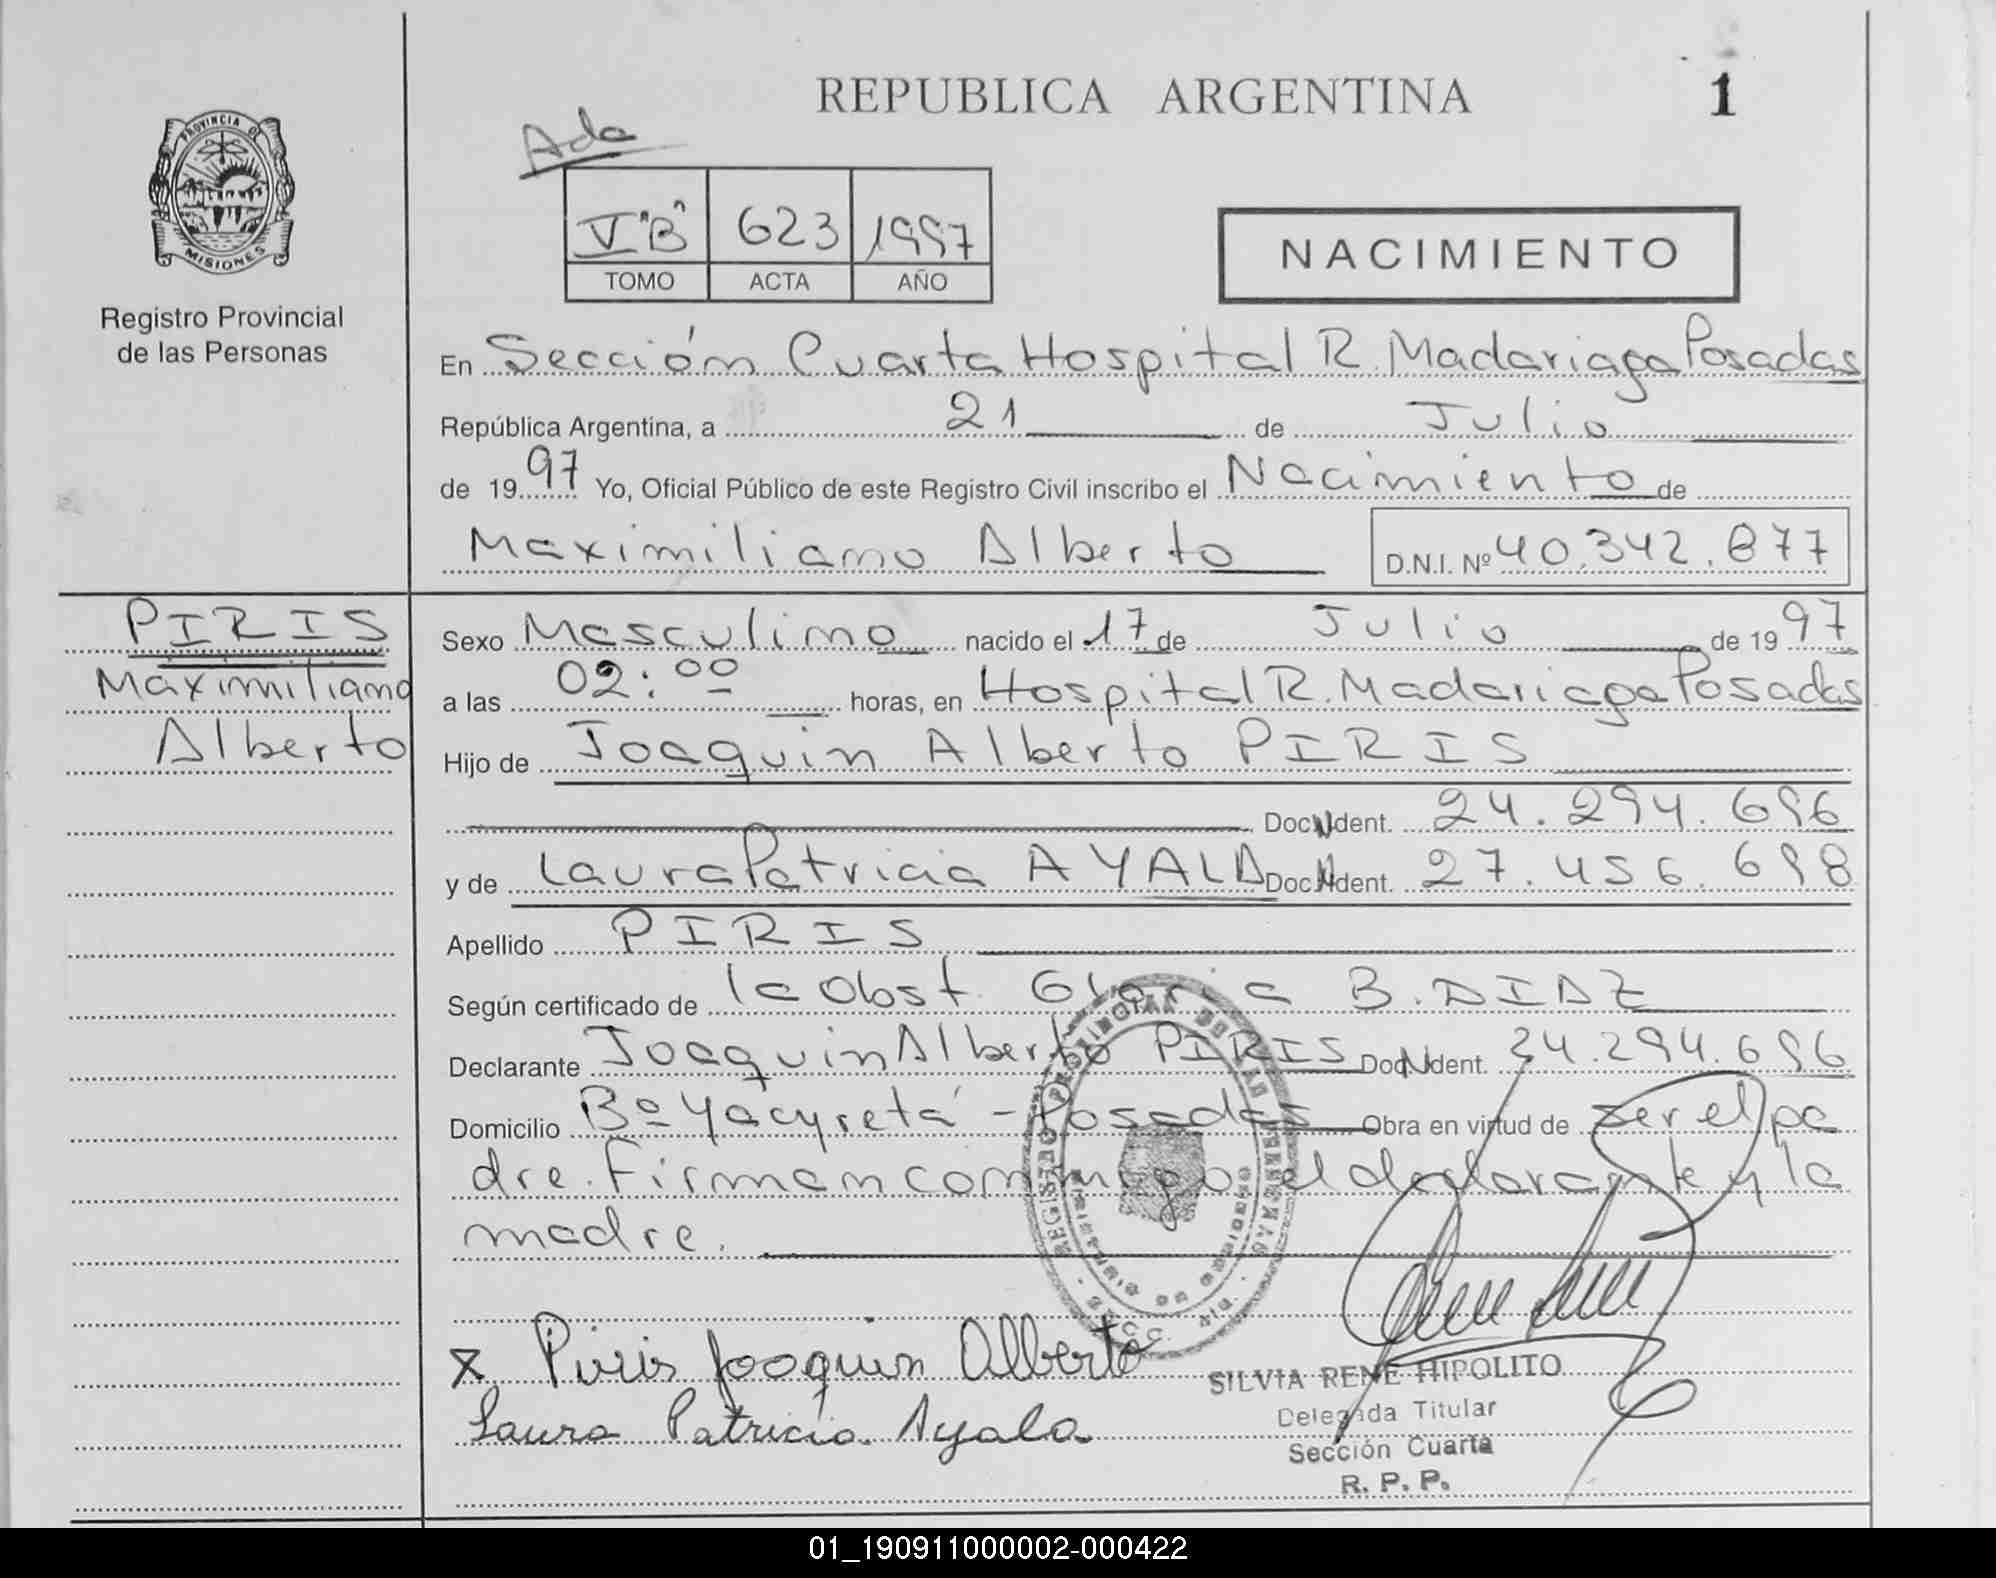 REPUBLICA ARGENTINA
1
Ada
PROVINCIA DE MISIONES
Registro Provincial
de las Personas
V "B" 623 1997
TOMO ACTA AÑO
NACIMIENTO
En Sección Cuarta Hospital R. Madariaga Posadas
República Argentina, a 21 de Julio
de 1997 Yo, Oficial Público de este Registro Civil inscribo el Nacimiento de
Maximiliano Alberto D.N.I. Nº 40.342.877
PIRIS
Maximiliano
Alberto
Sexo Masculino nacido el 17 de Julio de 1997
a las 02:00 horas, en Hospital R. Madariaga Posadas
Hijo de Joaquin Alberto PIRIS
Doc N Ident. 24.294.696
y de Laura Patricia AYALA Doc N Ident. 27.456.698
Apellido PIRIS
Según certificado de la Obst. Gloria B. DIAZ
Declarante Joaquin Alberto PIRIS Doc N Ident. 24.294.696
Domicilio Bº Yacyretá - Posadas Obra en virtud de ser el pa
dre. Firman conmigo el declarante y la
madre.
x Piris Joaquin Alberto
Laura Patricia Ayala
SILVIA RENE HIPOLITO
Delegada Titular
Sección Cuarta
R. P. P.
01_190911000002-000422